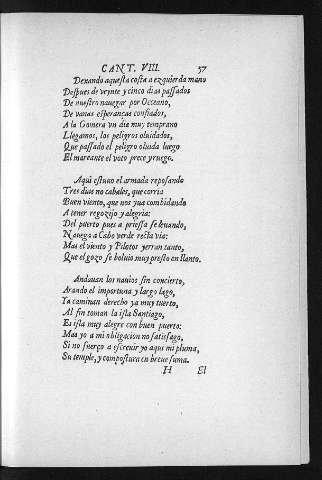 CANT. VIII. 57
Dexando aquesta costa a ezquierda mano
Despues de veynte y cinco dias passados
De nuestro nauegar por Occeano,
De vanas esperanças confiados,
A la Gomera vn dia muy temprano
Llegamos, los peligros oluidados,
Que passado el peligro oluida luego
El mareante el voto prece y ruego.
Aqui estuuo el armada reposando
Tres dias no cabales, que corria
Buen viento, que nos yua combidando
A tener regozijo y alegria:
Del puerto pues a priessa se leuando,
Nauega a Cabo verde recta via:
Mas el viento y Pilotos yerran tanto,
Que el gozo se boluio muy presto en llanto.
Andauan los nauios sin concierto,
Arando el importuna y largo lago,
Ya caminan derecho ya muy tuerto,
Al fin toman la isla Santiago,
Es isla muy alegre con buen puerto:
Mas yo a mi obligacion no satisfago,
Si no fuerço a escreuir yo aqui mi pluma,
Su temple, y compostura en breue suma.
H El